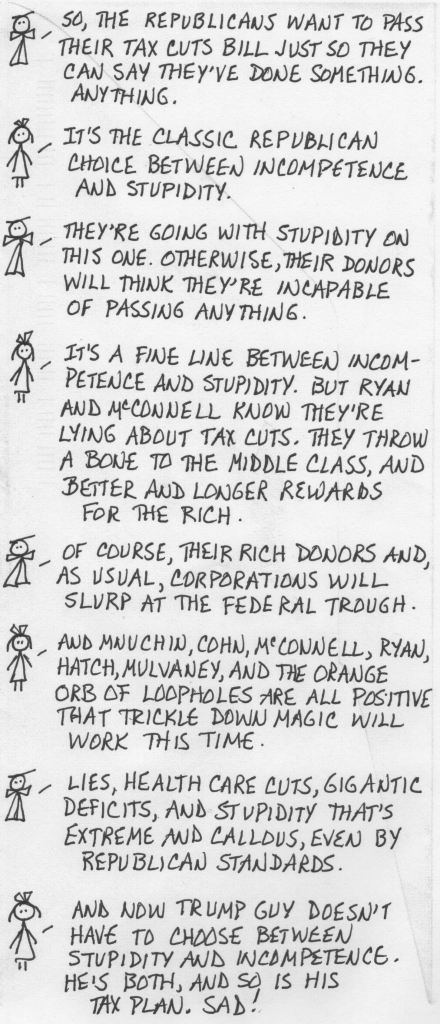 SO, THE REPUBLICANS WANT TO PASS
THEIR TAX CUTS BILL JUST SO THEY
CAN SAY THEY'VE DONE SOMETHING.
ANYTHING.
IT'S THE CLASSIC REPUBLICAN
CHOICE BETWEEN INCOMPETENCE
AND STUPIDITY.
THEY'RE GOING WITH STUPIDITY ON
THIS ONE. OTHERWISE, THEIR DONORS
WILL THINK THEY'RE INCAPABLE
OF PASSING ANYTHING.
IT'S A FINE LINE BETWEEN INCOM-
PETENCE AND STUPIDITY. BUT RYAN
AND McCONNELL KNOW THEY'RE
LYING ABOUT TAX CUTS. THEY THROW
A BONE TO THE MIDDLE CLASS, AND
BETTER AND LONGER REWARDS
FOR THE RICH.
OF COURSE, THEIR RICH DONORS AND,
AS USUAL, CORPORATIONS WILL
SLURP AT THE FEDERAL TROUGH.
AND MNUCHIN, COHN, McCONNELL, RYAN,
HATCH, MULVANEY, AND THE ORANGE
ORB OF LOOPHOLES ARE ALL POSITIVE
THAT TRICKLE DOWN MAGIC WILL
WORK THIS TIME.
LIES, HEALTH CARE CUTS, GIGANTIC
DEFICITS, AND STUPIDITY THAT'S
EXTREME AND CALLOUS, EVEN BY
REPUBLICAN STANDARDS.
AND NOW TRUMP GUY DOESN'T
HAVE TO CHOOSE BETWEEN
STUPIDITY AND INCOMPETENCE.
HE'S BOTH, AND SO IS HIS
TAX PLAN. SAD!